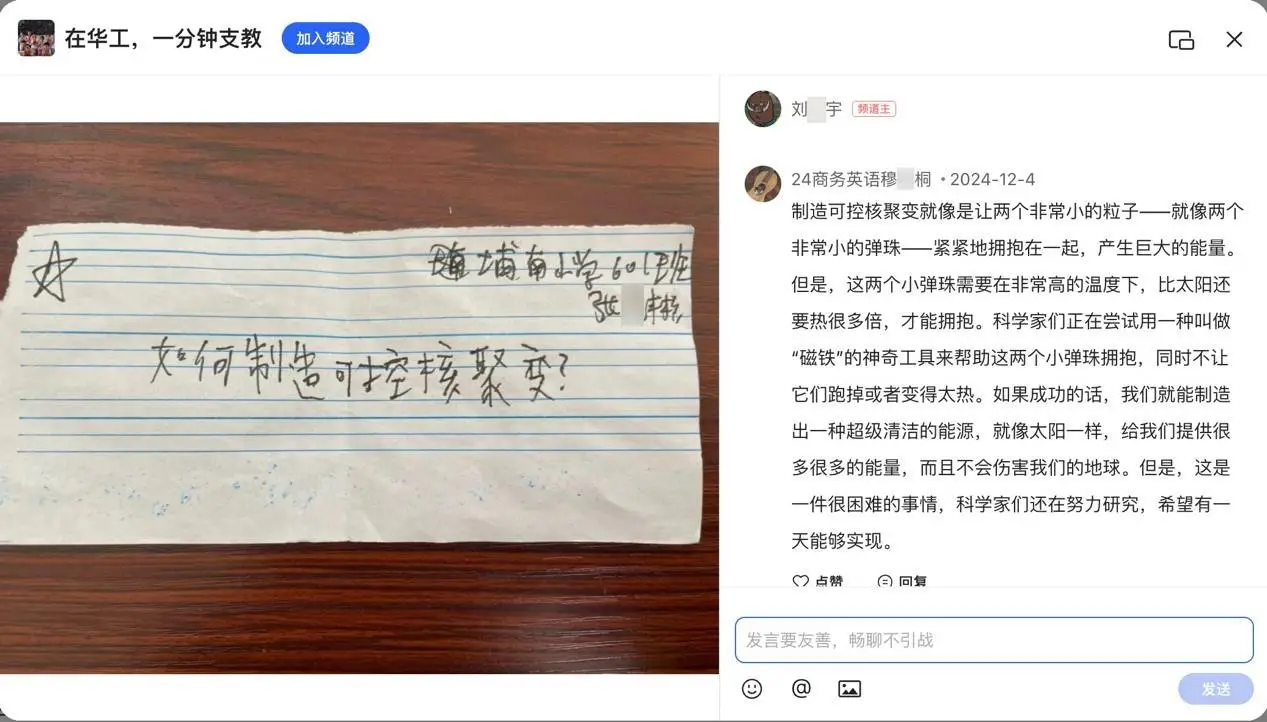 在华工，一分钟支教
加入频道
埔南小学601班
张
如何制造可控核聚变？
刘 宇 频道主
24商务英语穆 桐 • 2024-12-4
制造可控核聚变就像是让两个非常小的粒子——就像两个
非常小的弹珠——紧紧地拥抱在一起，产生巨大的能量。
但是，这两个小弹珠需要在非常高的温度下，比太阳还
要热很多倍，才能拥抱。科学家们正在尝试用一种叫做
“磁铁”的神奇工具来帮助这两个小弹珠拥抱，同时不让
它们跑掉或者变得太热。如果成功的话，我们就能制造
出一种超级清洁的能源，就像太阳一样，给我们提供很
多很多的能量，而且不会伤害我们的地球。但是，这是
一件很困难的事情，科学家们还在努力研究，希望有一
天能够实现。
点赞 回复
发言要友善，畅聊不引战
发送